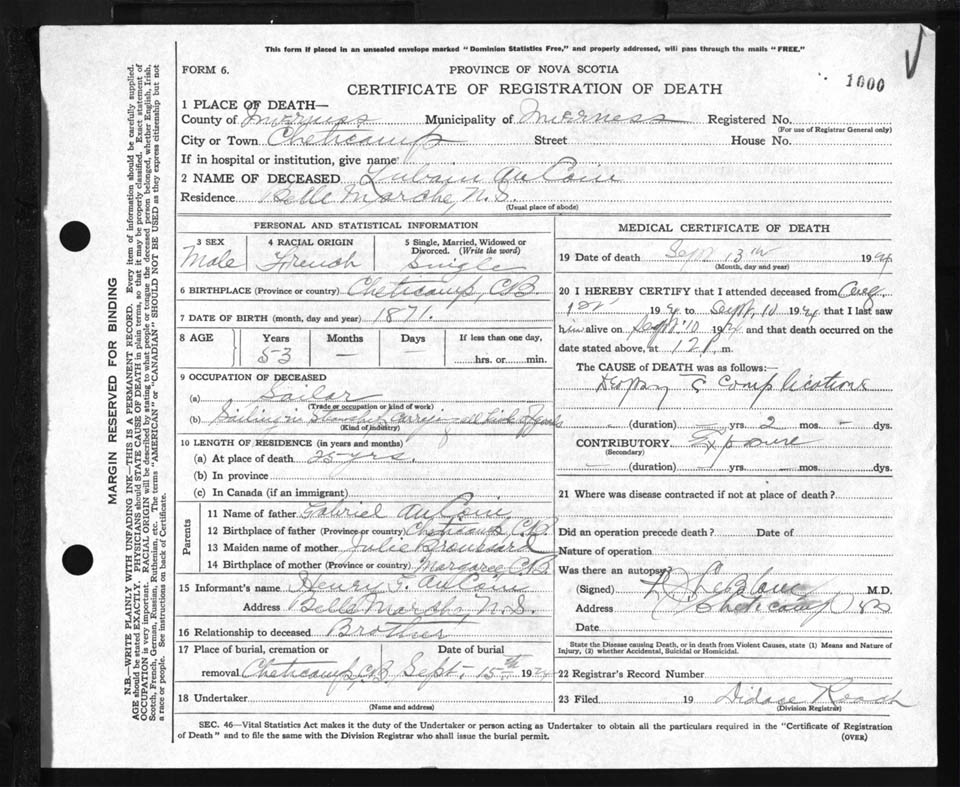 This form if placed in an unsealed envelope marked "Dominion Statistics Free," and properly addressed, will pass through the mails "FREE."
FORM 6.
PROVINCE OF NOVA SCOTIA
1000
CERTIFICATE OF REGISTRATION OF DEATH
1 PLACE OF DEATH—
County of Inverness Municipality of Inverness Registered No.
(For use of Registrar General only)
City or Town Cheticamp Street House No.
If in hospital or institution, give name
2 NAME OF DECEASED Urbain AuCoin
Residence Belle Marche, N.S.
(Usual place of abode)
PERSONAL AND STATISTICAL INFORMATION
3 SEX 4 RACIAL ORIGIN 5 Single, Married, Widowed or Divorced. (Write the word)
Male French Single
6 BIRTHPLACE (Province or country) Cheticamp, C.B.
7 DATE OF BIRTH (month, day and year) 1871.
8 AGE Years Months Days If less than one day,
53 — — hrs. or min.
9 OCCUPATION OF DECEASED
(a) Sailor
(Trade or occupation or kind of work)
(b) Sailing in Steamship Carrying all kinds of
(Kind of industry)
10 LENGTH OF RESIDENCE (in years and months)
(a) At place of death 25 yrs.
(b) In province
(c) In Canada (if an immigrant)
Parents
11 Name of father Gabriel AuCoin
12 Birthplace of father (Province or country) Cheticamp, C.B.
13 Maiden name of mother Julie Broussard
14 Birthplace of mother (Province or country) Margaree C.B.
15 Informant's name Henry T. AuCoin
Address Belle Marche, N.S.
16 Relationship to deceased Brother
17 Place of burial, cremation or Date of burial
removal Cheticamp, C.B. Sept. 15th 1924
18 Undertaker
(Name and address)
MEDICAL CERTIFICATE OF DEATH
19 Date of death Sept 13th 1924
(Month, day and year)
20 I HEREBY CERTIFY that I attended deceased from Aug
1924 to Sept. 10 1924 that I last saw
him alive on Sept. 10 1924 and that death occurred on the
date stated above, at 12 P. m.
The CAUSE of DEATH was as follows:
Complications
(duration) — yrs. 2 mos. — dys.
CONTRIBUTORY Exposure
(Secondary)
— (duration) — yrs. — mos. dys.
21 Where was disease contracted if not at place of death?
Did an operation precede death? Date of
Nature of operation
Was there an autopsy?
(Signed) LeBlanc M.D.
Address Cheticamp
Date
State the Disease causing Death, or in death from Violent Causes, state (1) Means and Nature of Injury, (2) whether Accidental, Suicidal or Homicidal.
22 Registrar's Record Number
23 Filed 19
(Division Registrar)
SEC. 46—Vital Statistics Act makes it the duty of the Undertaker or person acting as Undertaker to obtain all the particulars required in the "Certificate of Registration
of Death" and to file the same with the Division Registrar who shall issue the burial permit. (OVER)
MARGIN RESERVED FOR BINDING
N.B.—WRITE PLAINLY WITH UNFADING INK—THIS IS A PERMANENT RECORD. Every item of information should be carefully supplied.
AGE should be stated EXACTLY. PHYSICIANS should STATE CAUSE OF DEATH in plain terms, so that it may be properly classified. Exact statement of
OCCUPATION is very important. RACIAL ORIGIN will be described by stating to what people or tongue the deceased person belonged, whether English, Irish,
Scotch, French, German, Russian, Ruthenian, etc. The terms "AMERICAN" or "CANADIAN" SHOULD NOT BE USED as they express citizenship but not
a race or people. See instructions on back of Certificate.